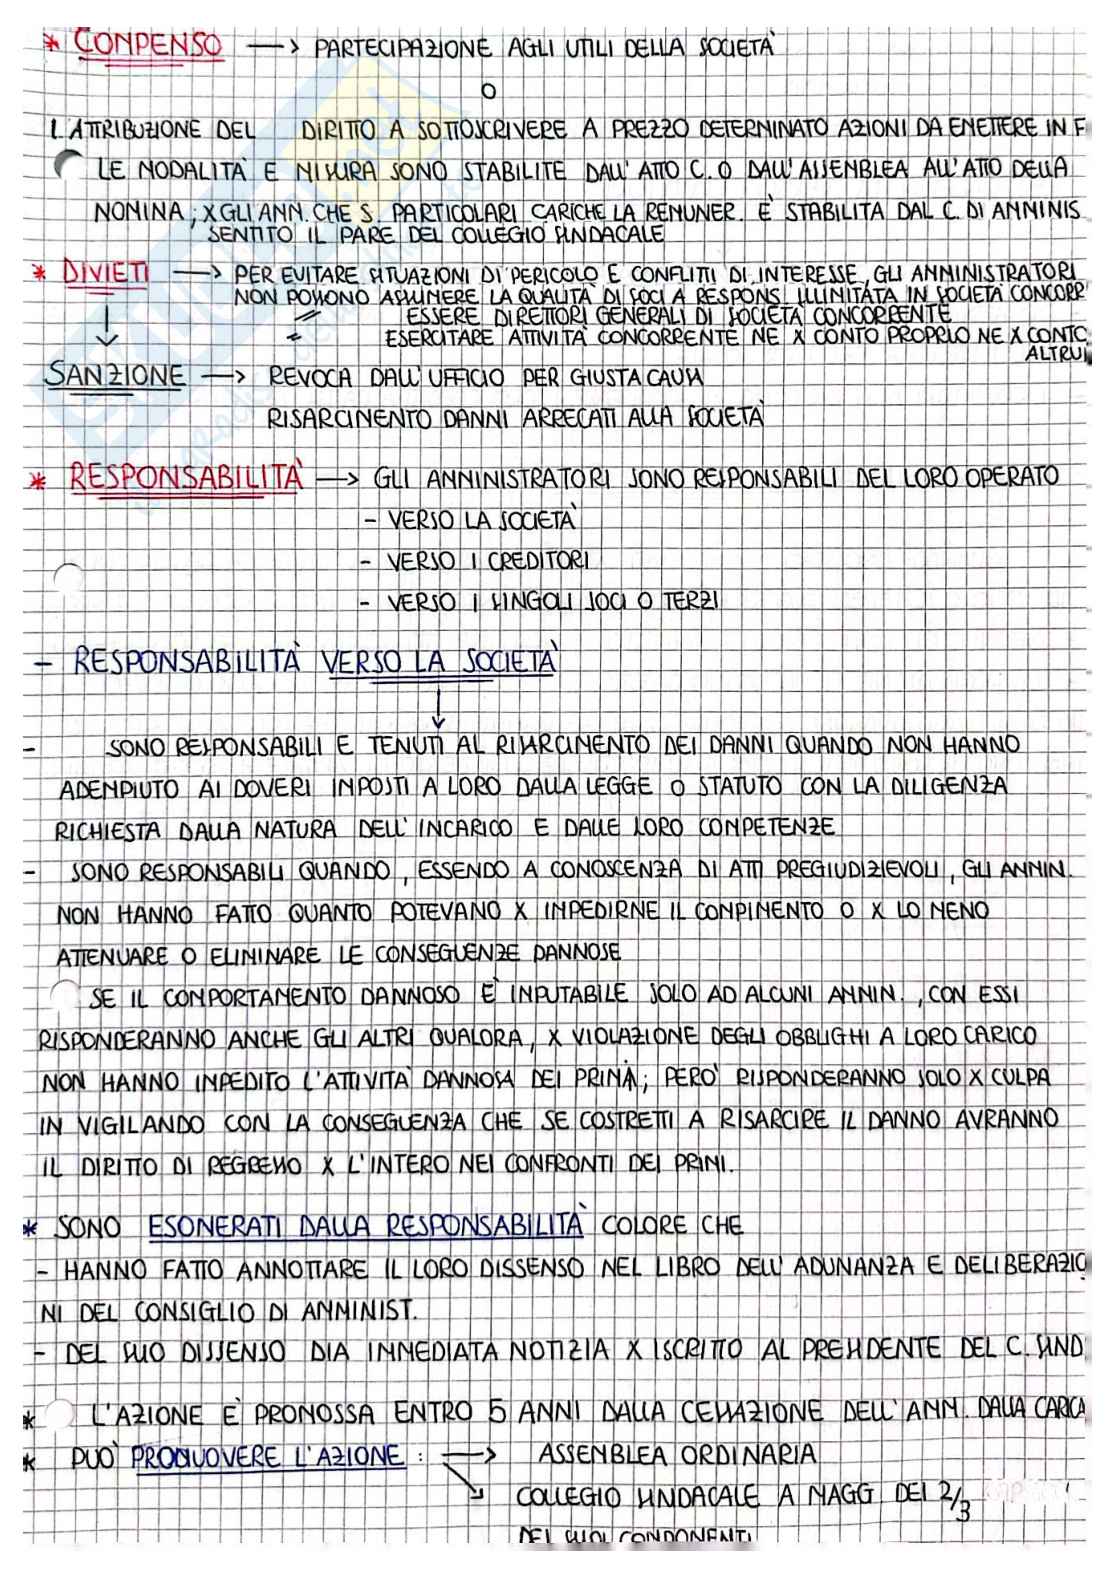 * COMPENSO → PARTECIPAZIONE AGLI UTILI DELLA SOCIETÀ
O
L'ATTRIBUZIONE DEL DIRITTO A SOTTOSCRIVERE A PREZZO DETERMINATO AZIONI DA EMETTERE IN F
LE MODALITÀ E MISURA SONO STABILITE DALL'ATTO C. O DALL'ASSEMBLEA ALL'ATTO DELLA
NOMINA; X GLI AMM. CHE S. PARTICOLARI CARICHE LA REMUNER. È STABILITA DAL C. DI AMMINIS
SENTITO IL PARE DEL COLLEGIO SINDACALE
* DIVIETI → PER EVITARE SITUAZIONI DI PERICOLO E CONFLITTI DI INTERESSE, GLI AMMINISTRATORI
NON POSSONO ASSUMERE LA QUALITÀ DI SOCI A RESPONS. ILLIMITATA IN SOCIETÀ CONCORR
〃 ESSERE DIRETTORI GENERALI DI SOCIETÀ CONCORRENTE
〃 ESERCITARE ATTIVITÀ CONCORRENTE NE X CONTO PROPRIO NE X CONTO
ALTRUI
SANZIONE → REVOCA DALL'UFFICIO PER GIUSTA CAUSA
RISARCIMENTO DANNI ARRECATI ALLA SOCIETÀ
* RESPONSABILITÀ → GLI AMMINISTRATORI SONO RESPONSABILI DEL LORO OPERATO
- VERSO LA SOCIETÀ
- VERSO I CREDITORI
- VERSO I SINGOLI SOCI O TERZI
- RESPONSABILITÀ VERSO LA SOCIETÀ
- SONO RESPONSABILI E TENUTI AL RISARCIMENTO DEI DANNI QUANDO NON HANNO
ADEMPIUTO AI DOVERI IMPOSTI A LORO DALLA LEGGE O STATUTO CON LA DILIGENZA
RICHIESTA DALLA NATURA DELL'INCARICO E DALLE LORO COMPETENZE
- SONO RESPONSABILI QUANDO, ESSENDO A CONOSCENZA DI ATTI PREGIUDIZIEVOLI, GLI AMMIN.
NON HANNO FATTO QUANTO POTEVANO X IMPEDIRNE IL COMPIMENTO O X LO MENO
ATTENUARE O ELIMINARE LE CONSEGUENZE DANNOSE
SE IL COMPORTAMENTO DANNOSO È IMPUTABILE SOLO AD ALCUNI AMMIN., CON ESSI
RISPONDERANNO ANCHE GLI ALTRI QUALORA, X VIOLAZIONE DEGLI OBBLIGHI A LORO CARICO
NON HANNO IMPEDITO L'ATTIVITÀ DANNOSA DEI PRIMI; PERÒ RISPONDERANNO SOLO X CULPA
IN VIGILANDO CON LA CONSEGUENZA CHE SE COSTRETTI A RISARCIRE IL DANNO AVRANNO
IL DIRITTO DI REGRESSO X L'INTERO NEI CONFRONTI DEI PRIMI.
* SONO ESONERATI DALLA RESPONSABILITÀ COLORE CHE
- HANNO FATTO ANNOTTARE IL LORO DISSENSO NEL LIBRO DELL'ADUNANZA E DELIBERAZIO
NI DEL CONSIGLIO DI AMMINIST.
- DEL SUO DISSENSO DIA IMMEDIATA NOTIZIA X ISCRITTO AL PRESIDENTE DEL C. SIND
* L'AZIONE È PROMOSSA ENTRO 5 ANNI DALLA CESSAZIONE DELL'AMM. DALLA CARICA
* PUÒ PROMUOVERE L'AZIONE: → ASSEMBLEA ORDINARIA
↘ COLLEGIO SINDACALE A MAGG DEI 2/3
DEI SUOI COMPONENTI